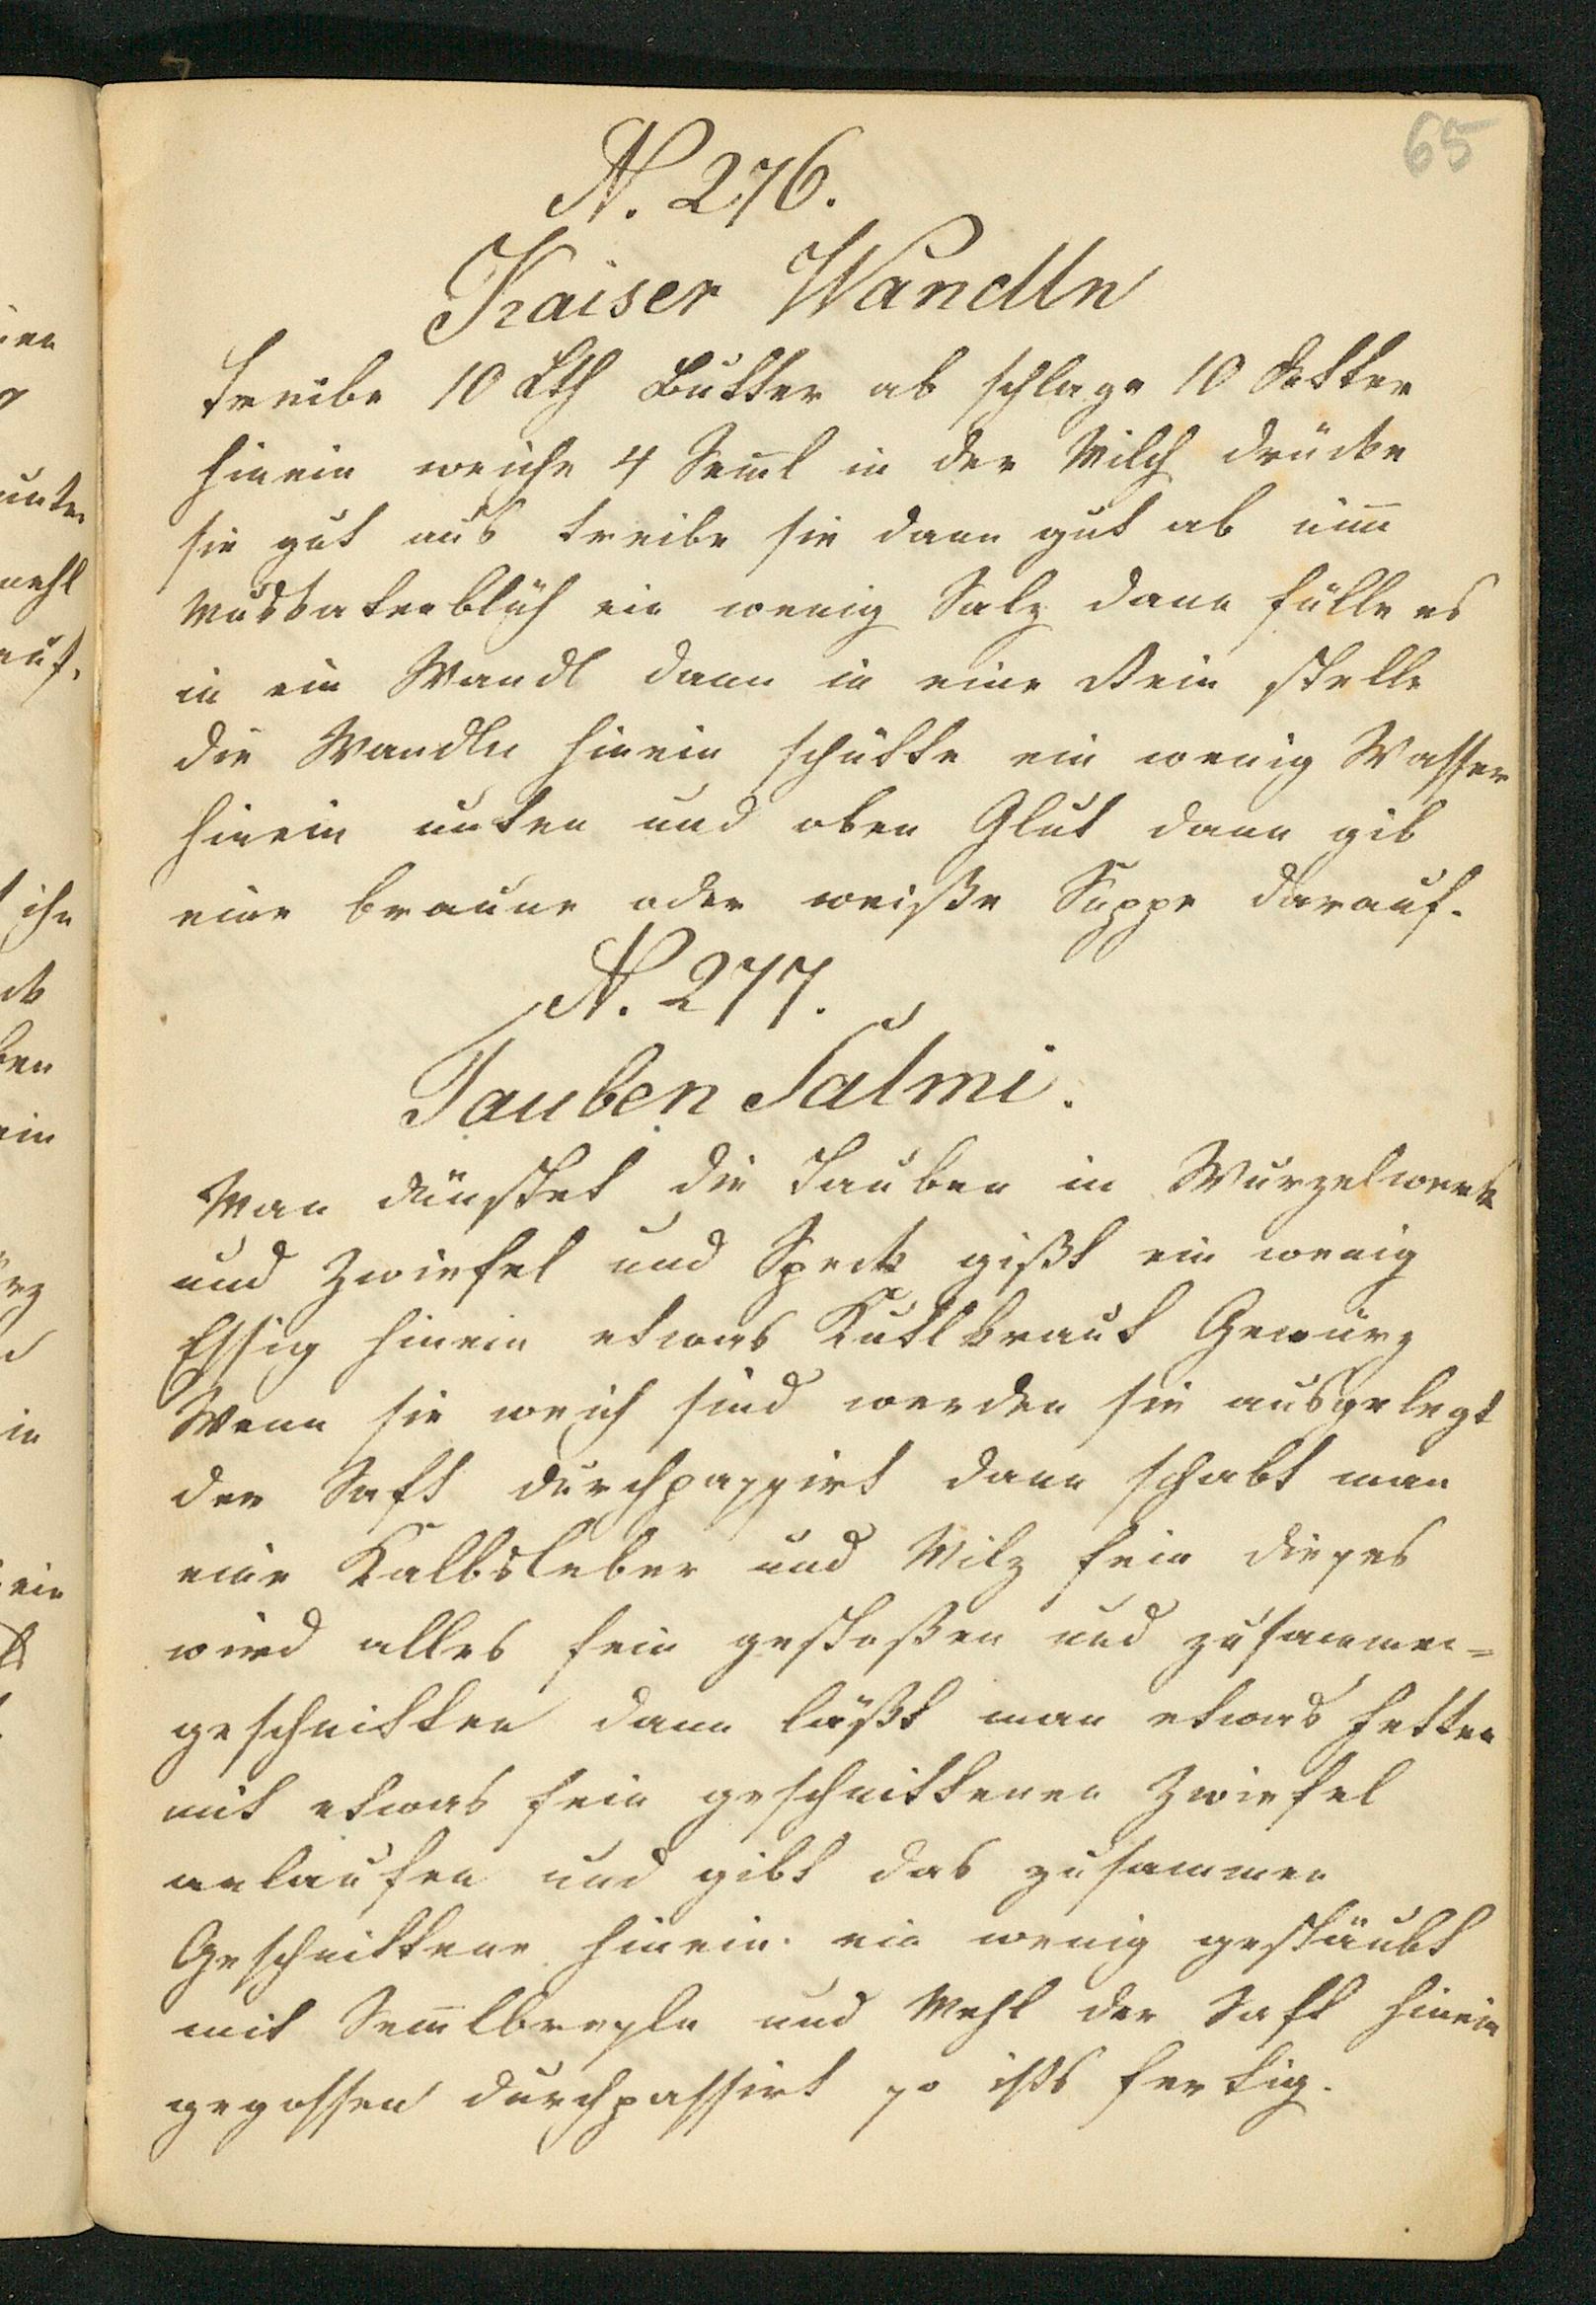 65
N. 276.
Kaiser Wandln
Treibe 10 Lth Butter ab schlage 10 Dotter
hinein weiche 4 Sem̄l in der Milch drücke
sie gut aus treibe sie dann gut ab nim̄
Muskatenblüh ein wenig Salz dann fülle es
in ein Wandl dann in eine Rein stelle
die Wandln hinein schütte ein wenig Wasser
hinein unten und oben Glut dann gib
eine braune oder weiße Suppe darauf.
N. 277.
Tauben Salmi.
Man dünstet die Tauben in Wurzelwerk
und Zwiefel und Speck gißt ein wenig
Essig hinein etwas Kutlkraut Gewürz
Wenn sie weich sind werden sie ausgelegt
der Saft durchpassirt dann schabt man
eine Kalbsleber und Milz fein dieses
wird alles fein gestoßen und zusammen=
geschnitten dann läßt man etwas Fetten
mit etwas fein geschnittenen Zwiefel
anlaufen und gibt das zusammen
Geschnittene hinein. ein wenig gestäubt
mit Sem̄lbresln und Mehl der Saft hinein
gegossen durchpassirt so ists fertig.